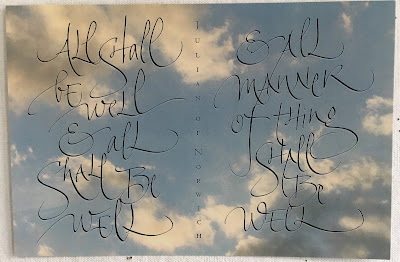 All Shall
be Well
& All
Shall Be
Well
Julian of Norwich
& All
Manner
of thing
Shall
Be
Well